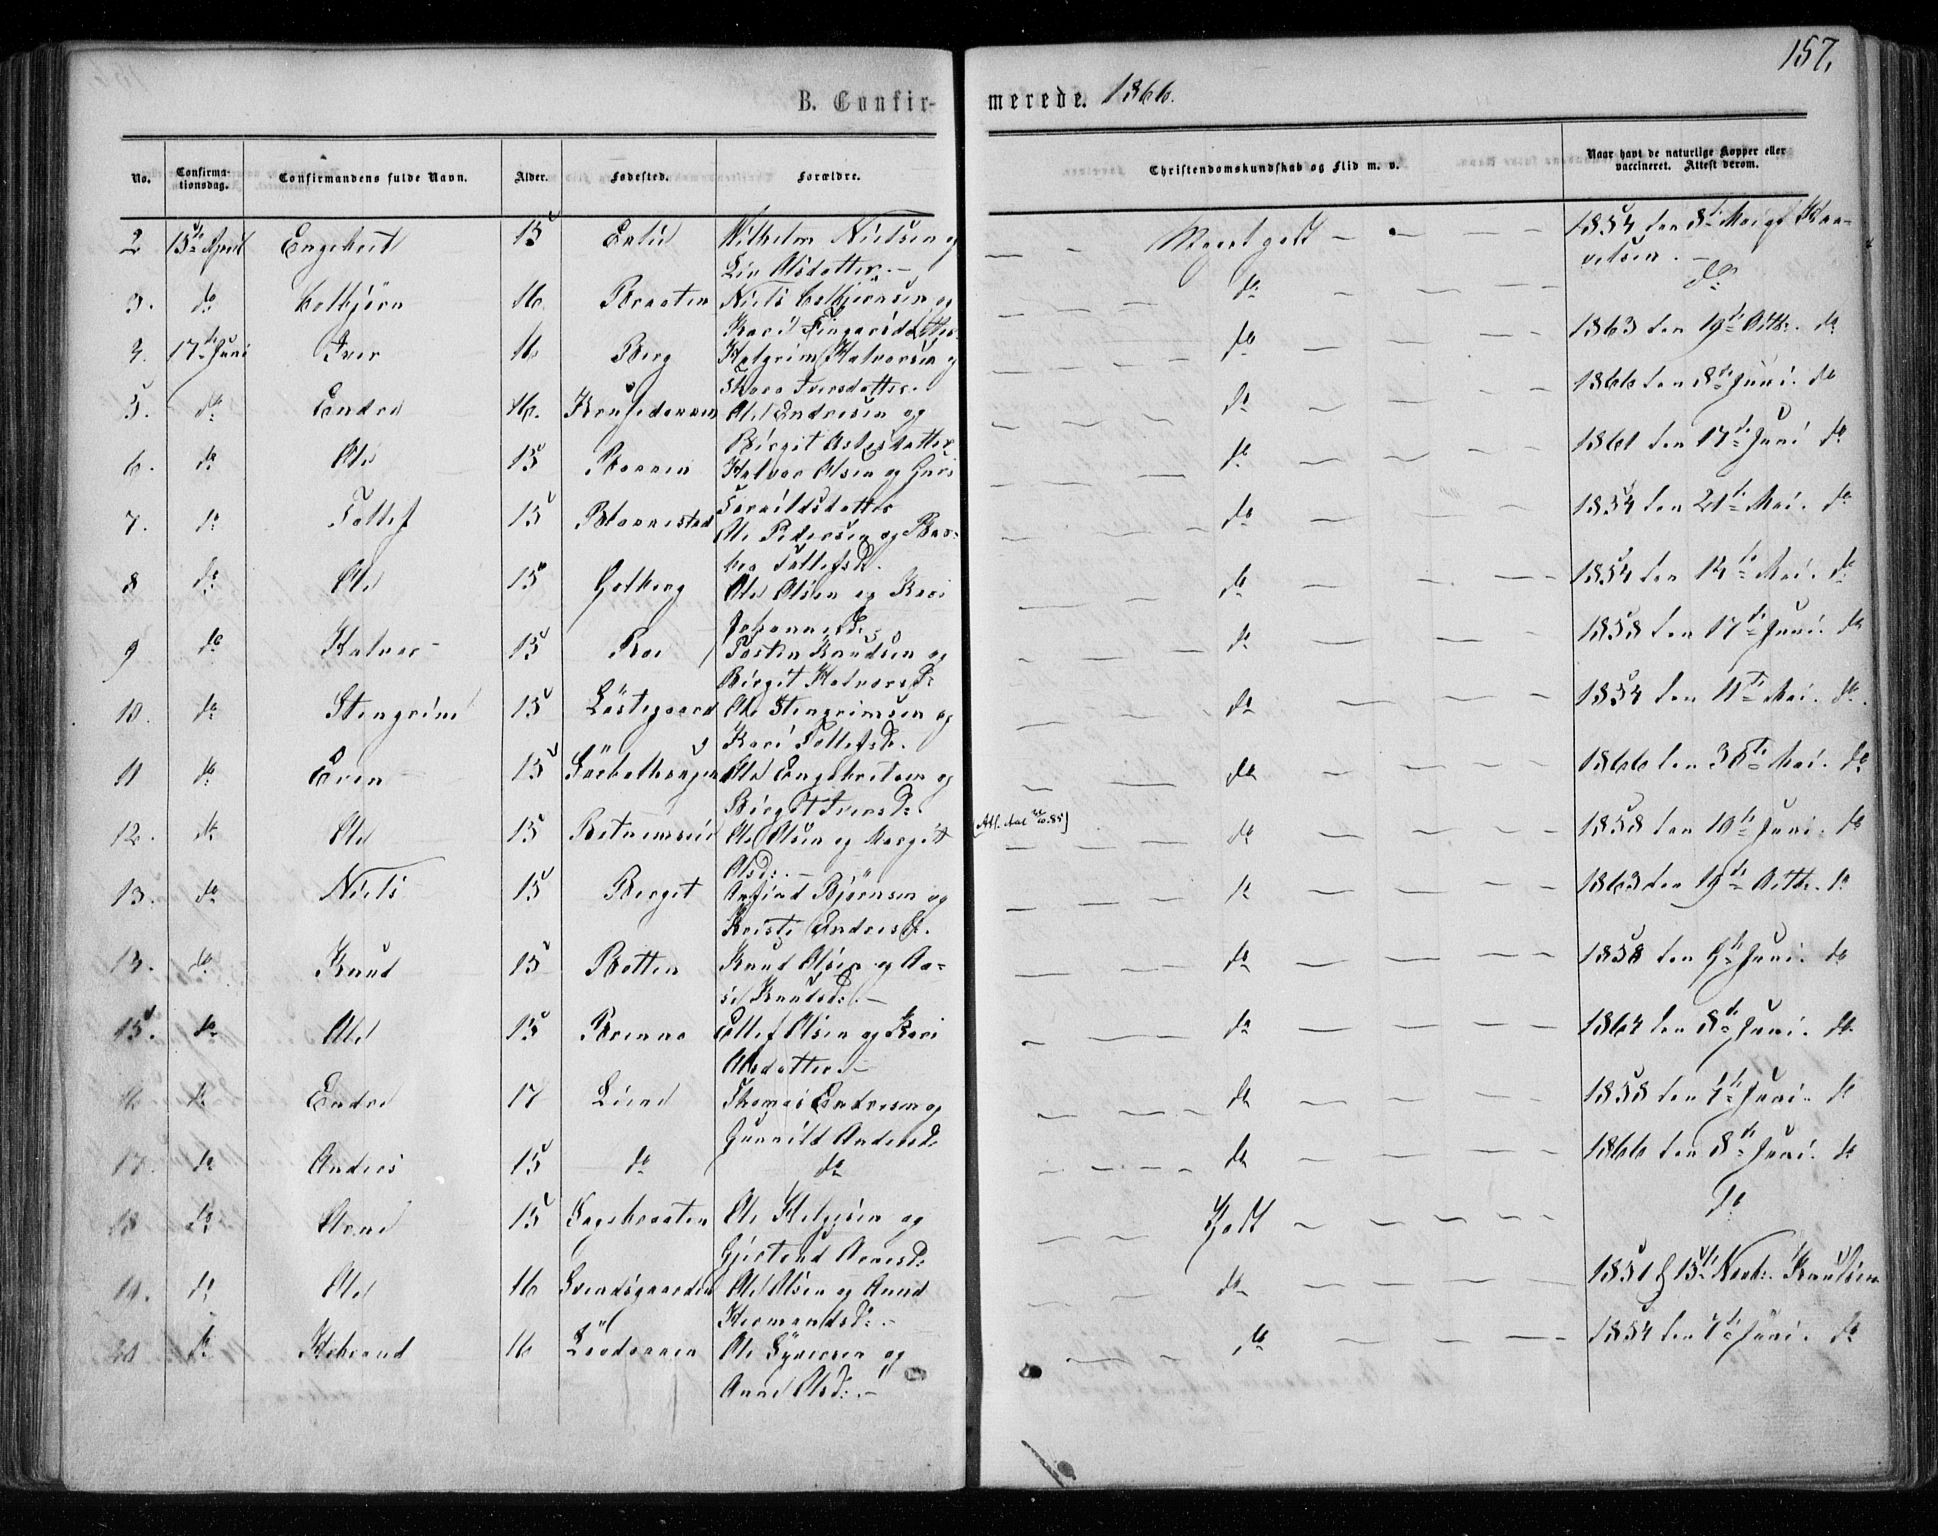 157.
B. Confirmerede. 1866.
No. Confirmationsdag. Confirmandens fulde Navn. Alder. Fødested. Forældre. Christendomskundskab og Flid m. v. Naar havt de naturlige Kopper eller vaccineret. Attest derom.
2 15de April Engebret 15 Enlid Vilhelm Nielsen og Liv Olsdatter. Meget godt 1854 den 8de Mai af
3. do 16 Braaten Niels og Kari do do
4. 17de Juni Iver 16 Berg Halgrim Halvorsen og Iversdatter. do 1863 den 19de Octbr. do
5. do Endre 16. Ole Endresen og Birgit do 1866 den 8de Juni. do
6. do Ole 15 Halvor Olsen og Guri do 1861 den 17de Juni do
7. do Tollef 15 Ole Pedersen og Barbra Tollefsd. do 1854 den 21de Mai. do
8 do Ole 15 Golberg Ole Olsen og Kari Johannesd. do 1854 den 14de Mai. do
9 do Halvor 15 Roe Tosten Knudsen og Birgit Halvorsd: do 1858 den 17de Juni. do
10. do Stengrim 15 Løstegaard Ole Stengrimsen og Kari Tollefsd. do 1854 den 11te Mai. do
11 do Even 15 Ole Engebretsen og Birgit Iversd: do 1866 den Mai. do
12. do Ole 15 Ole Olsen og Margit Olsd: do 1858 den 10de Juni. do
13. do Niels 15 Berget Arfind Bjørnsen og Kristi Endresd. do 1863 den 19de Octbr. do
do Knud 15 Botten Knud Olsen og Aase Knudsd: do 1858 den Juni. do
15. do Ole 15 Brenno Tollef Olsen og Kari Olsdatter. do 1864 den 8de Juni. do
16. do Endre 17 Liend Thomas Endresen og Gunnild Andersd. do 1858 den 7de Juni. do
17. do Andres 15 do do do 1866 den 8de Juni. do
18 do Arne 15 Sagebraaten Ole Helgesen og Arnesd. Godt do
19. do Ole 16 Svendsgaarden Ole Olsen og Anne Hermandsd: do 1851 15de Novbr. Knudsen
20 do Hebrand 16 Ole Syversen og Anne Olsd: do 1854 den 7de Juni. do